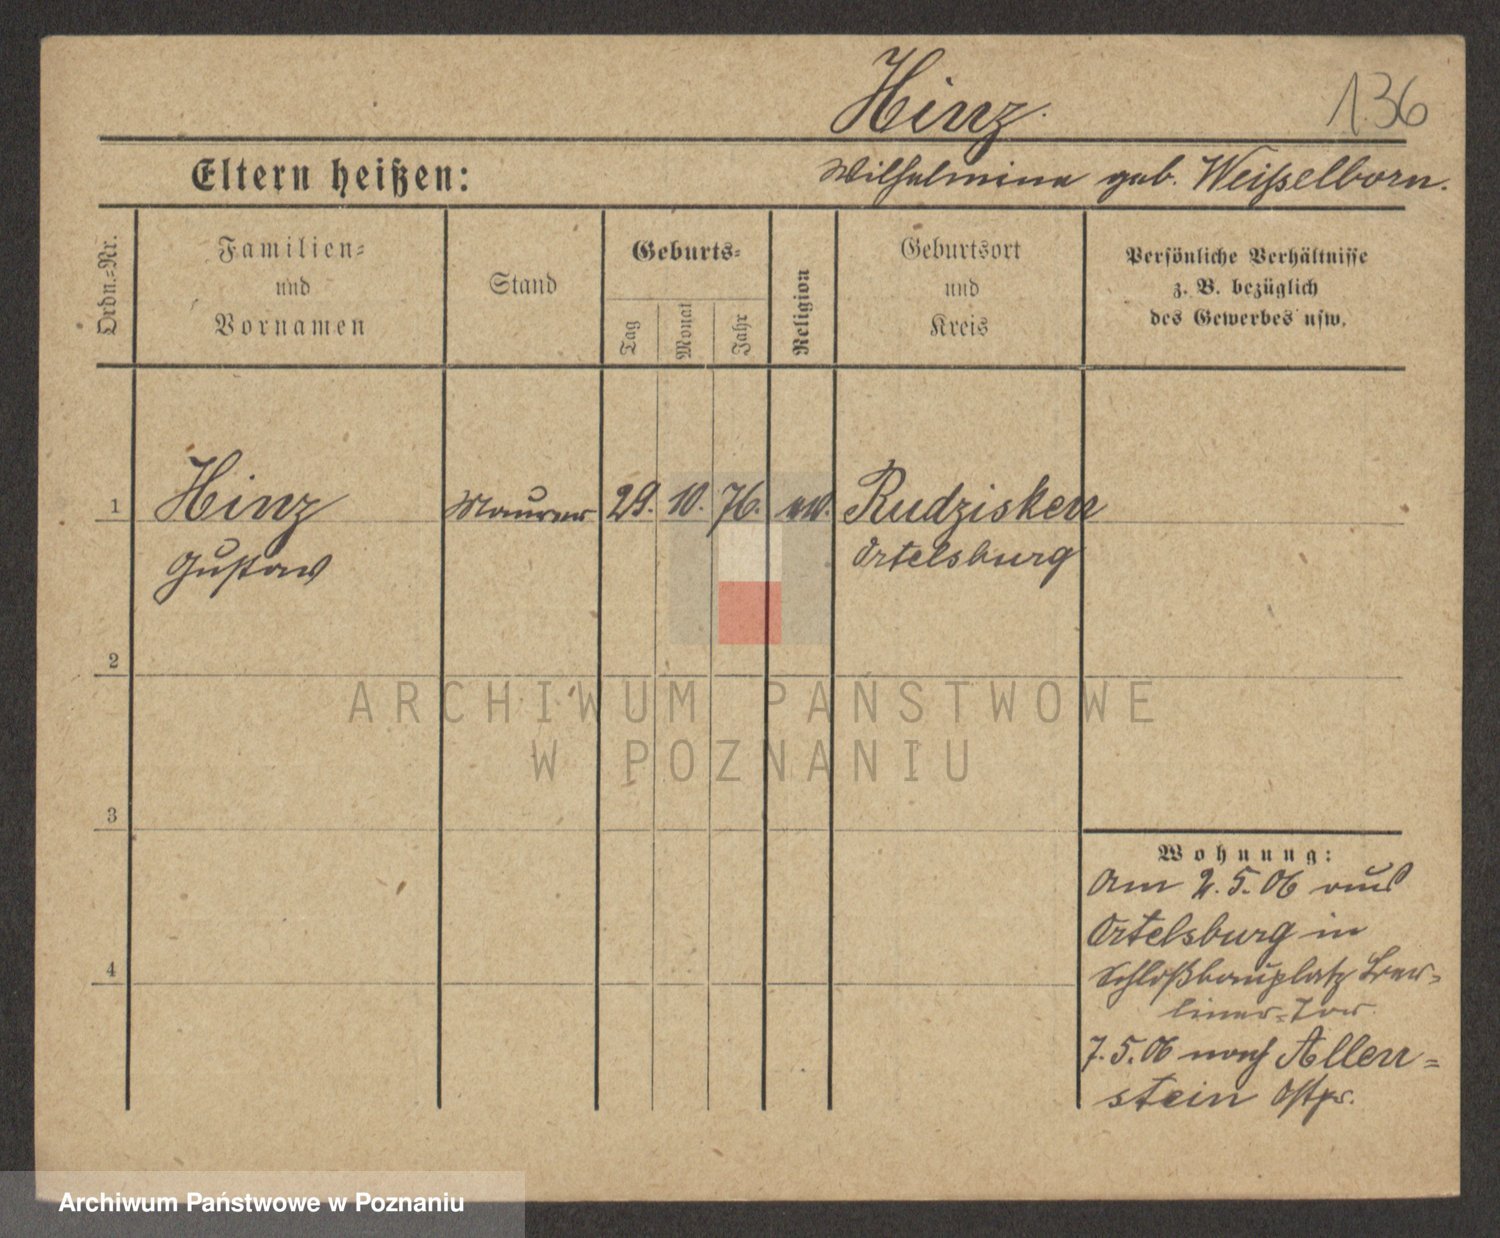 Hinz.
136
Eltern heißen:
Wilhelmina geb. Weißelborn.
Ordn.-Nr.
Familien-
und
Vornamen
Stand
Geburts-
Tag
Monat
Jahr
Religion
Geburtsort
und
Kreis
Persönliche Verhältnisse
z. B. bezüglich
des Gewerbes usw.
1
Hinz
Maurer
29. 10. 76.
ev.
Rudzisken
Gustav
Ortelsburg
2
ARCHIWUM PAŃSTWOWE
W POZNANIU
3
Wohnung:
Am 2.5.06 aus
Ortelsburg in
4
Schloßbauplatz Ber-
liner-Tor.
7.5.06 nach Allen-
stein Ostpr.
Archiwum Państwowe w Poznaniu